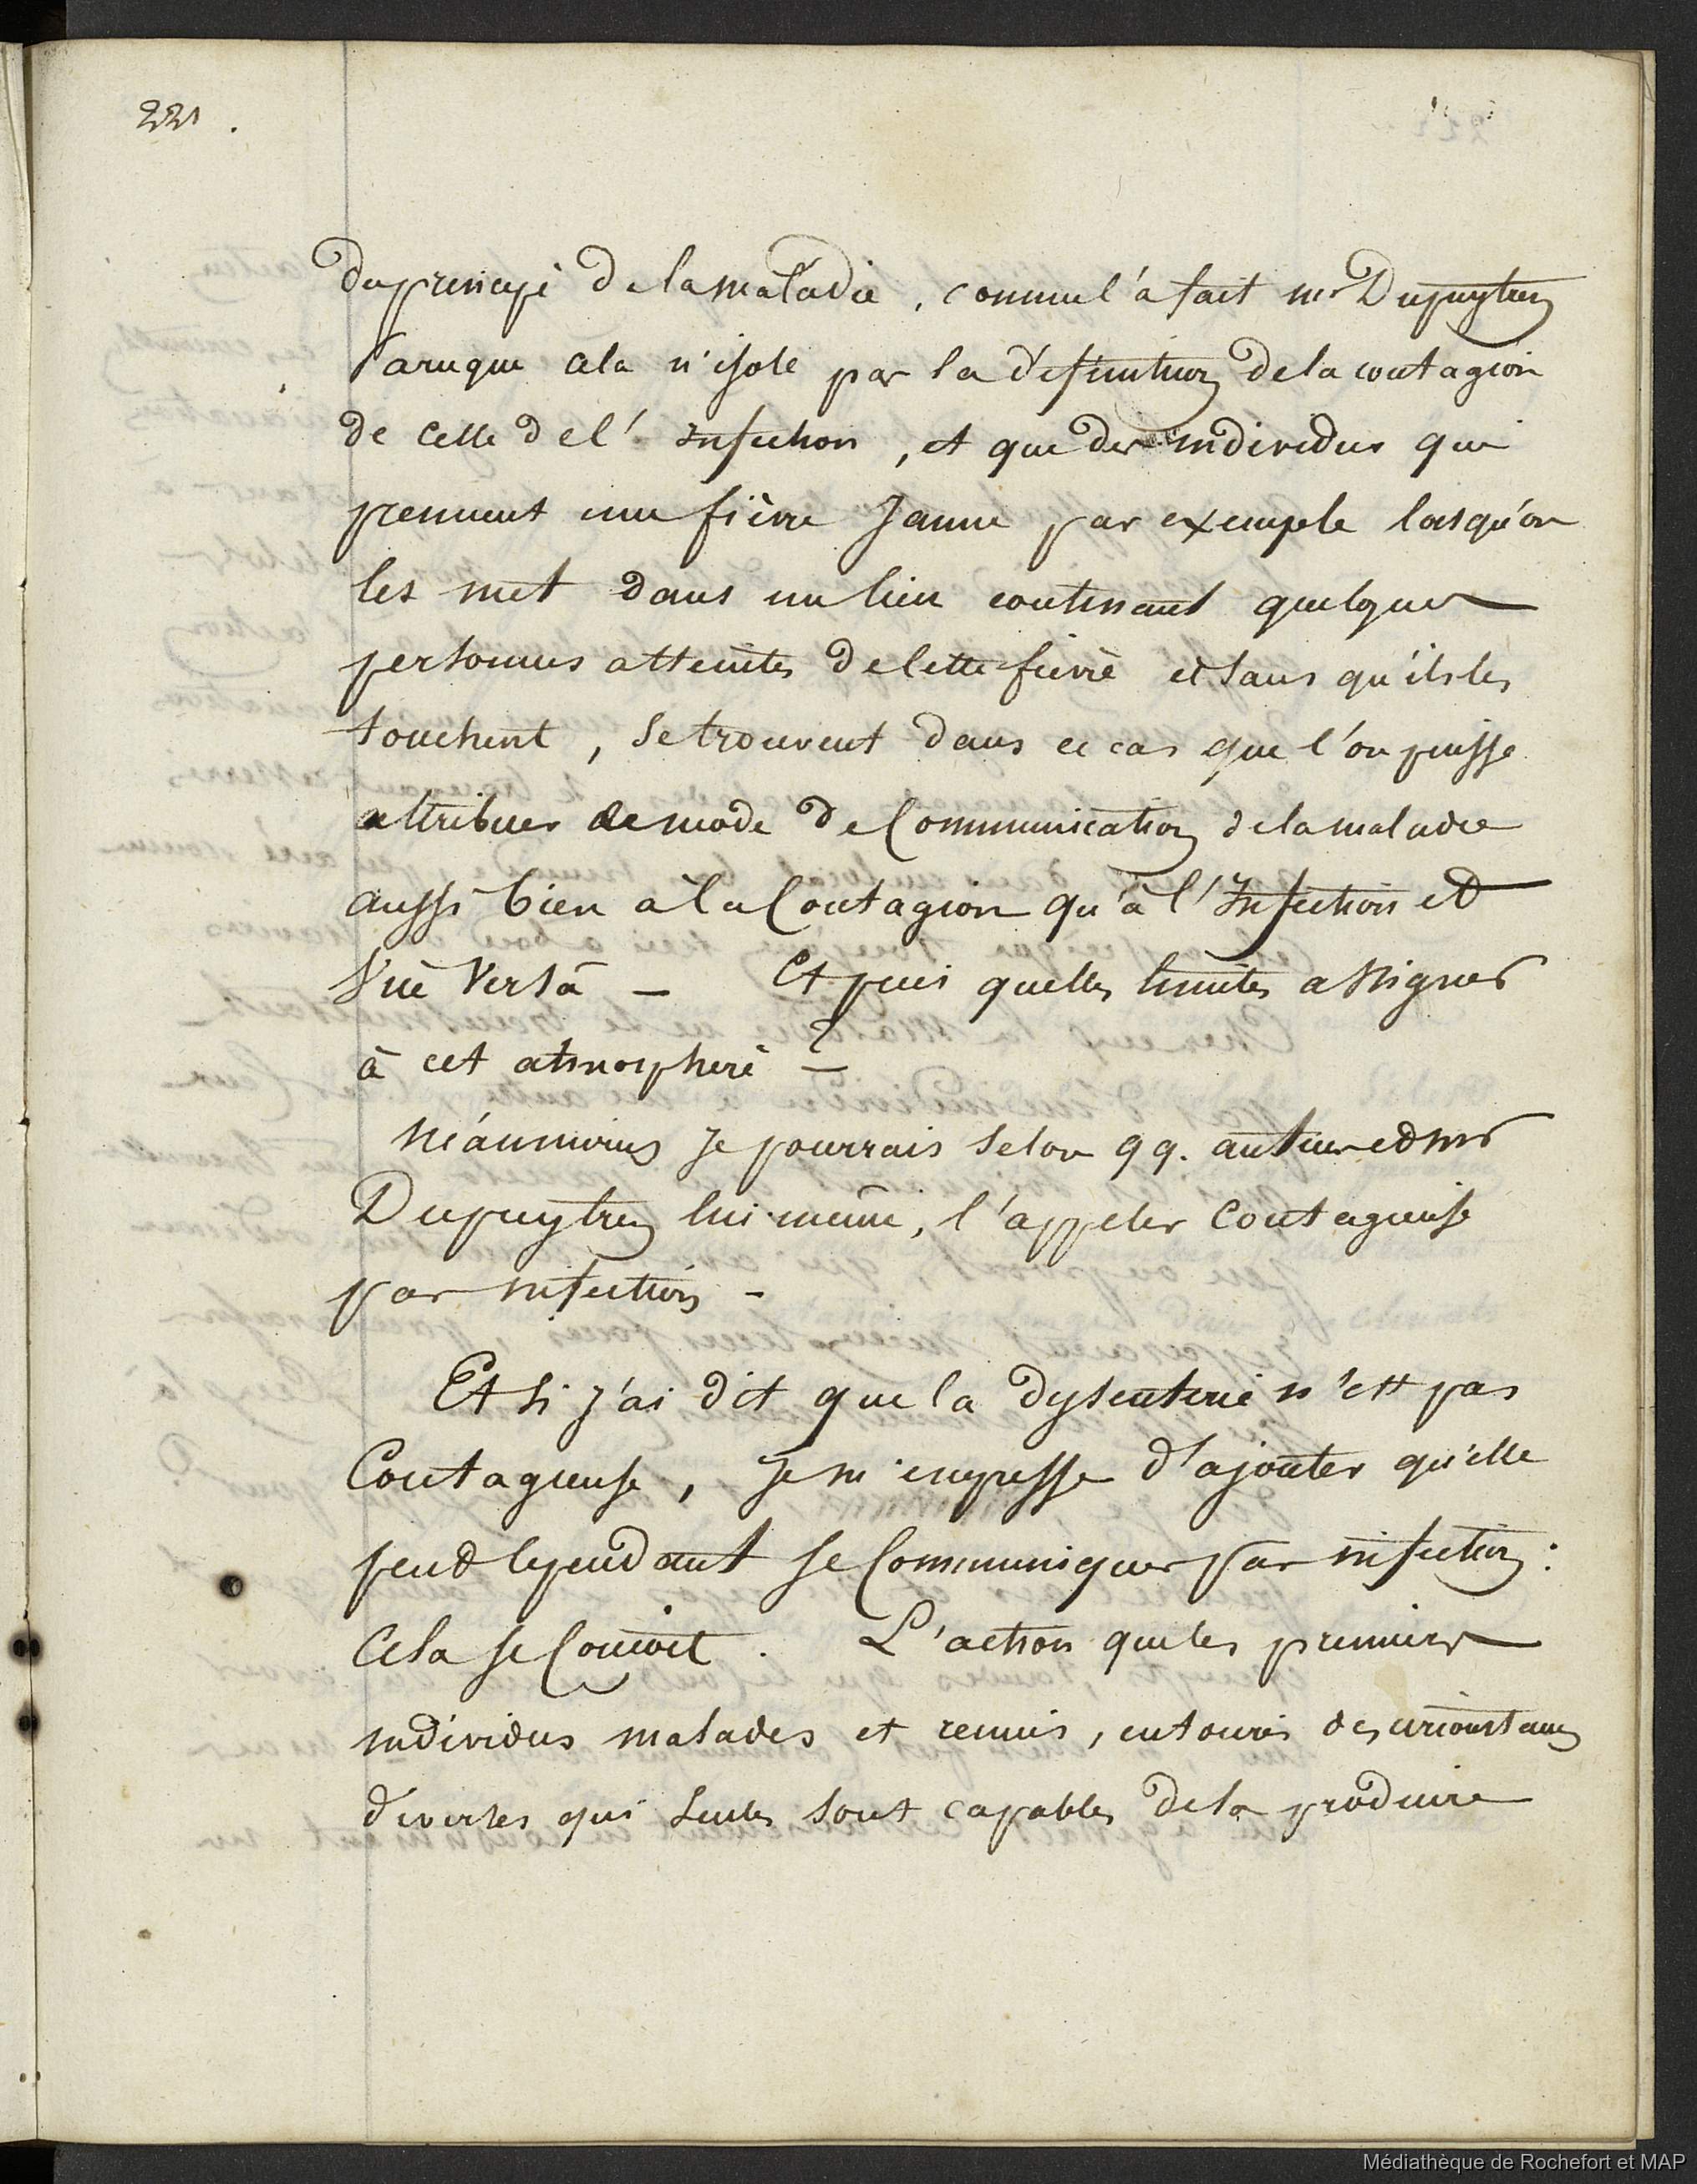 221.
du principe de la maladie, comme l'a fait mr Dupuytren
Parceque cela n'isole par la définition de la contagion
de celle de l'Infection, et que des individus qui
prennent une fièvre Jaune par exemple lorsqu'on
les met dans un lieu contenant quelques
personnes atteintes de cette fievre et sans qu'ils les
touchent, se trouvent dans ce cas que l'on puisse
attribuer ce mode de Communication de la maladie
aussi bien à la Contagion qu'à l'Infection et
Vice Versâ — Et puis quelles limites assigner
à cet atmosphere ? —
Néanmoins Je pourrais selon qq. auteurs et mr
Dupuytren lui même, l'appeler Contagieuse
par infection -
Et si j'ai dit que la dysenterie n'est pas
Contagieuse, Je m'empresse d'ajouter qu'elle
peut Cependant se Communiquer Par infection :
Cela se Conçoit. L'action que les premiers
individus malades et reunis, entourés des circonstances
diverses qui seules sont capables de la produire
Médiathèque de Rochefort et MAP